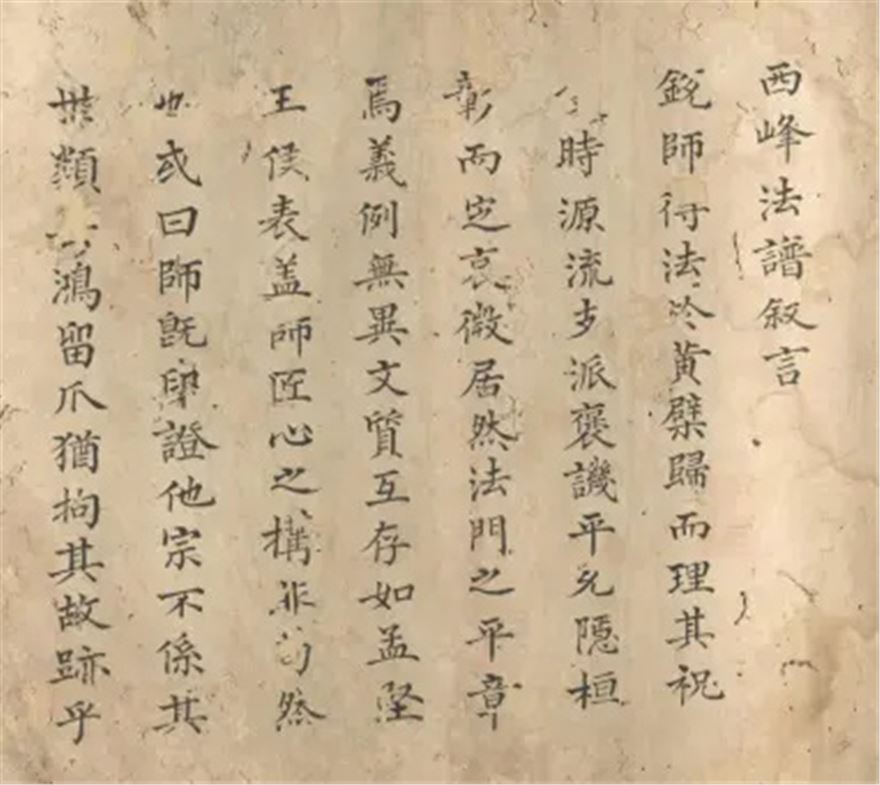 西峰法譜叙言
銳師得法於黄檗歸而理其祝
時源流支派褒譏平允隱桓
彰而定哀微居然法門之平章
焉義例無異文質互存如孟堅
王侯表盖師匠心之構非苟然
也或曰師旣印證他宗不係其
世類鴻留爪猶拘其故跡乎